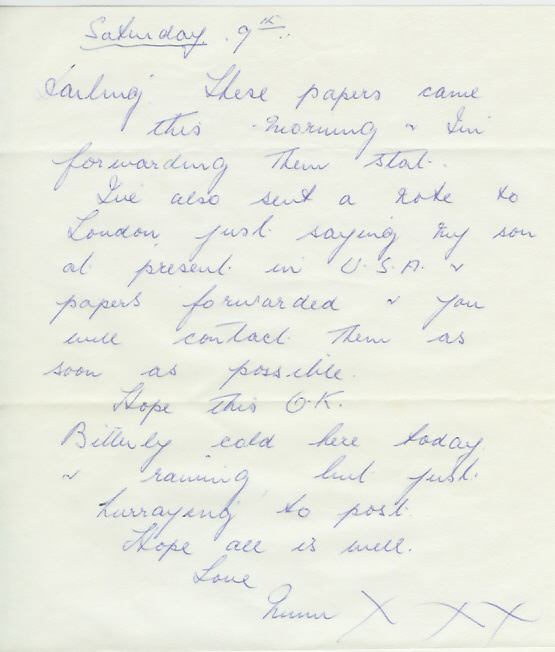 Saturday 9th.
Darling These papers came
this morning & I'm
forwarding them stat.
I've also sent a note to
London just saying my son
at present in U.S.A. &
papers forwarded & you
will contact them as
soon as possible.
Hope this O.K.
Bitterly cold here today
& raining but just
hurraying to post.
Hope all is well.
Love
Mum X X X